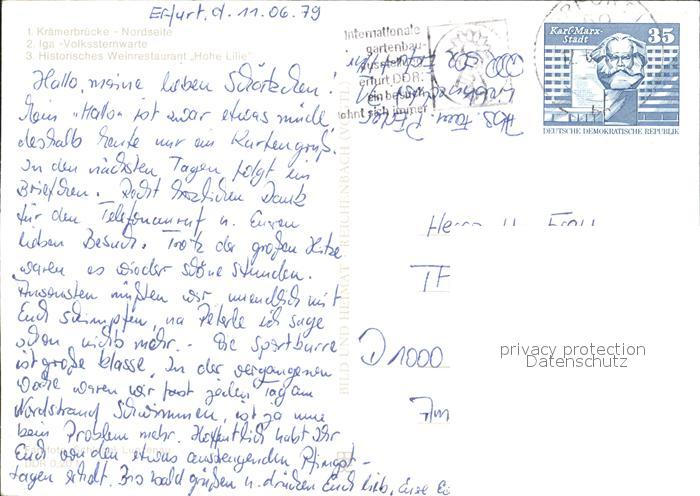 Erfurt, d. 11.06.79
1. Krämerbrücke - Nordseite
2. Iga-Volkssternwarte
3. Historisches Weinrestaurant „Hohe Lilie"
Hallo, meine lieben Schätzchen!
Mein "Hallo" ist zwar etwas müde,
deshalb heute nur ein Kartengruß.
In den nächsten Tagen folgt ein
Briefchen. Recht herzlichen Dank
für den Telefonanruf u. Euren
lieben Besuch. Trotz der großen Hitze
waren es wieder schöne Stunden.
Ansonsten müßten wir unendlich mit
Euch schimpfen, na Peterle ich sage
schon nichts mehr. - Die Sportburre
ist große Klasse. In der vergangenen
Woche waren wir fast jeden Tag am
Nordstrand schwimmen, ist ja nun
kein Problem mehr. Hoffentlich habt Ihr
Euch von den etwas anstrengenden Pfingst-
tagen erholt. Bis bald grüßen u. drücken Euch lieb, Eure
DDR
BILD UND HEIMAT REICHENBACH (VOGTL)
Internationale
gartenbau-
ausstellung
erfurt DDR
ein besuch
lohnt sich immer
Abs. Fam.
Karl-Marx-
Stadt
35
DEUTSCHE DEMOKRATISCHE REPUBLIK
Herrn u. Frau
D 1000
privacy protection
Datenschutz